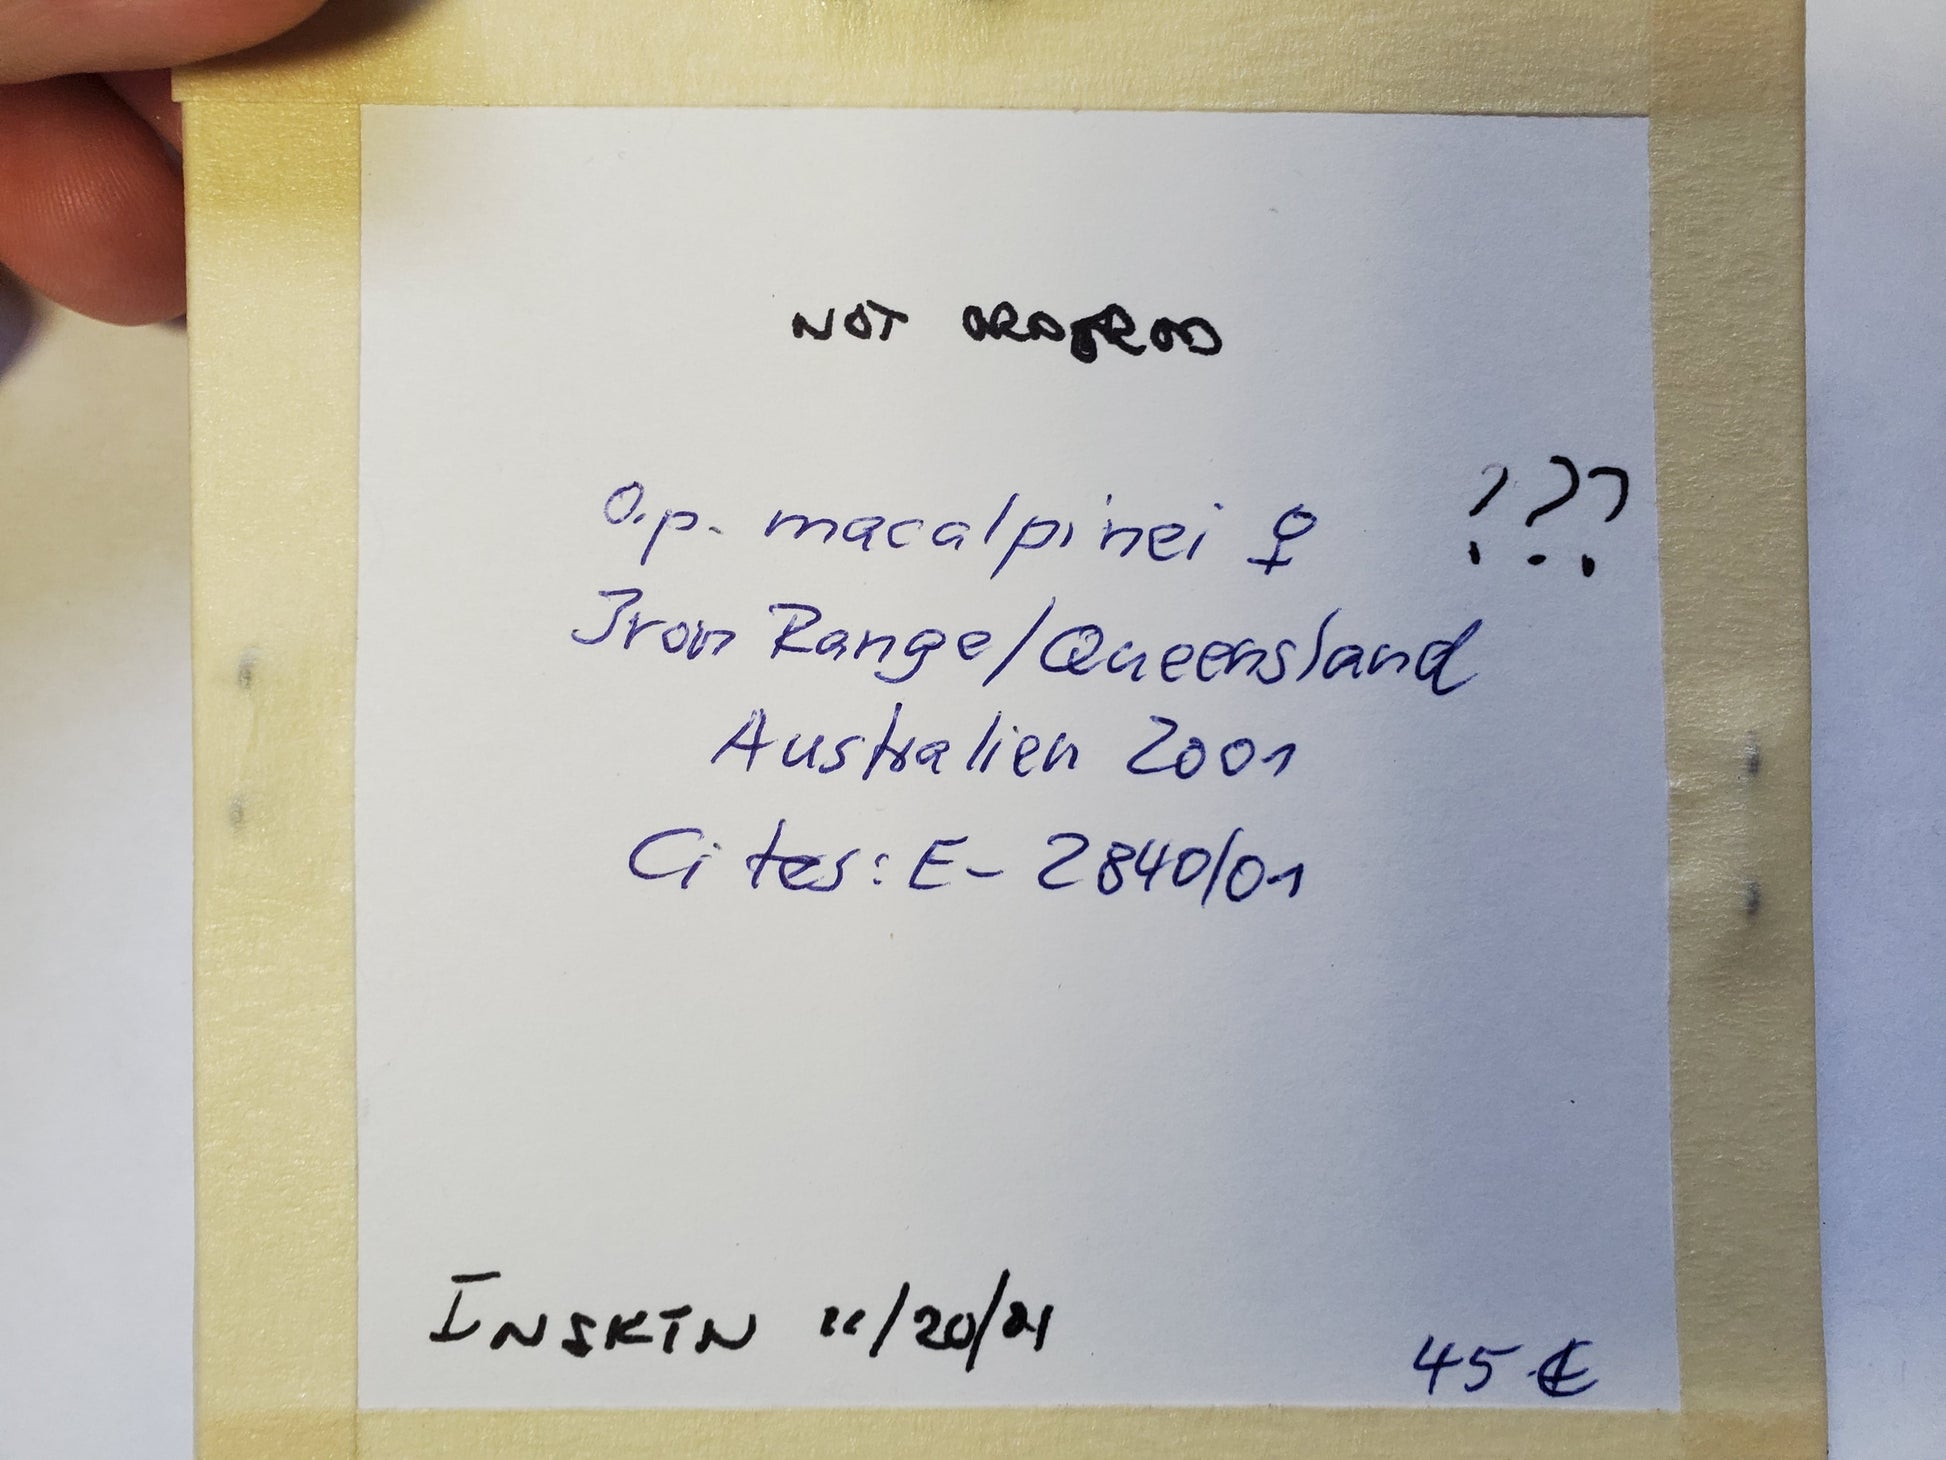 NOT ORDEROD
O.p. macalpinei ♀ ???
Iron Range/Queensland
Australien 2001
Cites: E- 2840/01
INSKIN 11/20/21
45 €